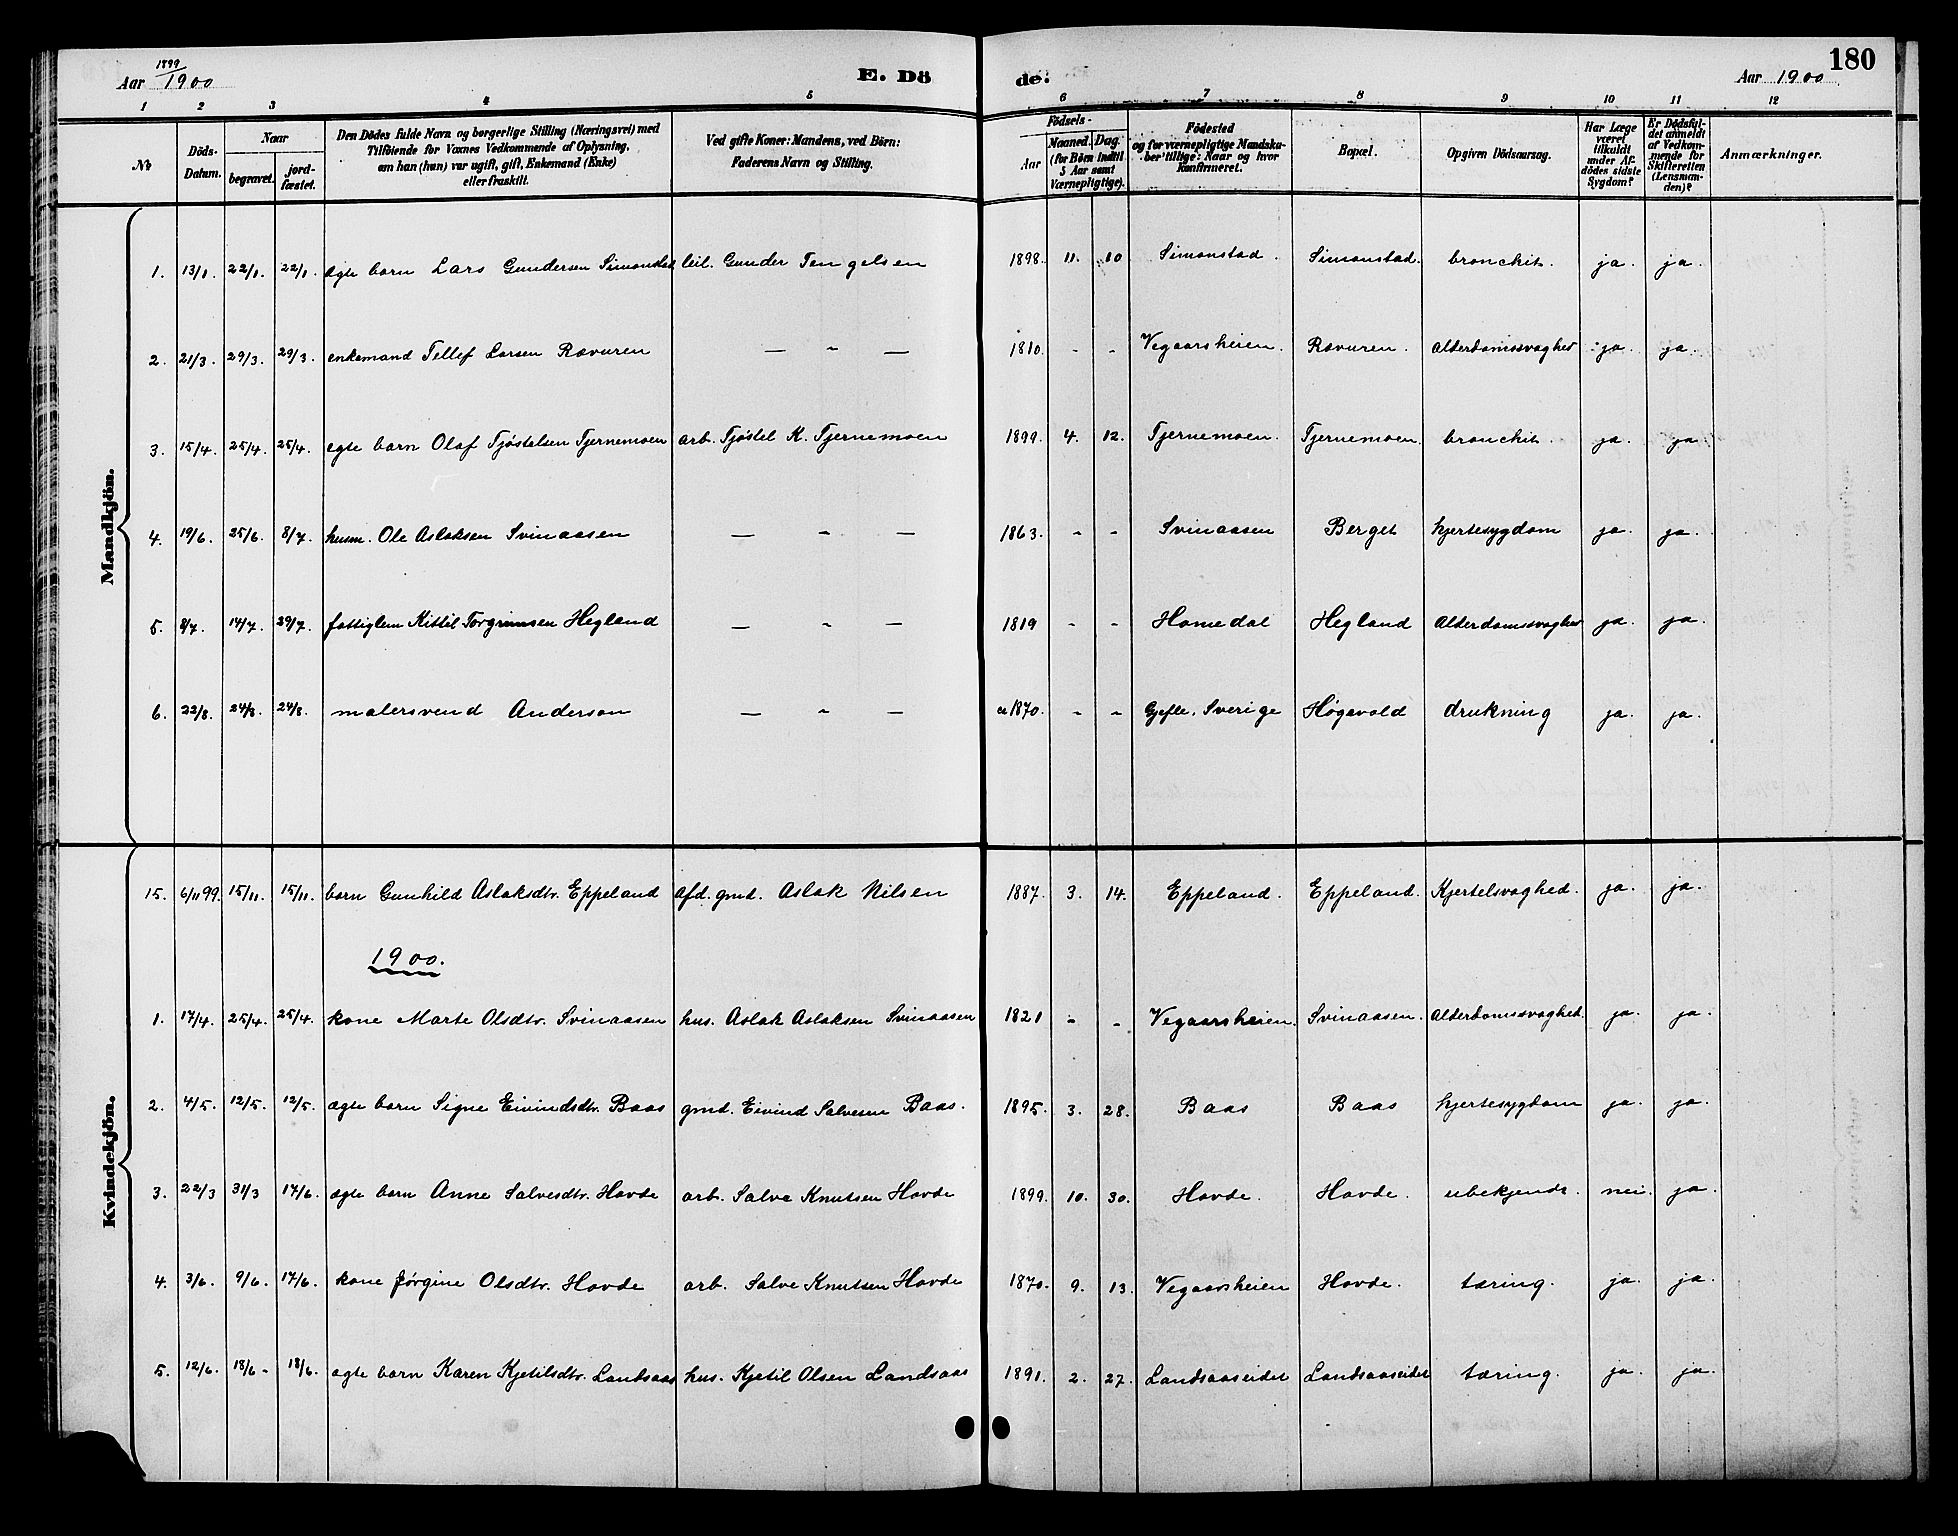 Aar 1899/1900
E. Dö
de.
Aar 1900.
180
1 2 3 4 5 6 7 8 9 10 11 12
№ | Döds-Datum. | Naar begravet. | jordfæstet. | Den Dödes fulde Navn og borgerlige Stilling (Næringsvei) med Tilföiende for Voxnes Vedkommende af Oplysning, om han (hun) var ugift, gift, Enkemand (Enke) eller fraskilt. | Ved gifte Koner: Mandens, ved Börn: Faderens Navn og Stilling. | Födsels- Aar | Maaned. | Dag. (for Börn indtil 5 Aar samt Værnepligtige). | Födested og for værnepligtige Mandskaber tillige: Naar og hvor Konfirmeret. | Bopæl. | Opgiven Dödsaarsag. | Har Læge været tilkaldt under Afdödes sidste Sygdom? | Er Dödsfaldet anmeldt af Vedkommende for Skifteretten (Lensmanden)? | Anmærkninger.
Mandkjön.
1. 13/1. 22/1. 22/1. ægte barn Lars Gundersen Simonstad leil. Gunder Tengelsen 1898. 11. 10 Simonstad. Simonstad. bronchit. ja. ja.
2. 21/3. 29/3. 29/3. enkemand Tellef Larsen Rævuren — - — 1810. - - Vegaarsheien. Rævuren. Alderdomssvaghed ja. ja.
3. 15/4. 25/4. 25/4. egte barn Olaf Tjøstelsen Tjernemoen arb. Tjøstel K. Tjernemoen 1899. 4. 12. Tjernemoen. Tjernemoen. bronchit. ja. ja
4. 19/6. 25/6. 8/7. husm. Ole Aslaksen Svinaasen — - — 1863. - - Svinaasen Berget hjertesygdom ja. ja.
5. 8/7. 14/7. 29/7. fattiglem Kittil Torgrimsen Hegland — - — 1819 - - Homedal Hegland Alderdomssvaghed ja. ja.
6. 22/8. 24/8. 24/8. malersvend Anderson — - — ca 1870. - - Gjefle, Sverige Høgevold drukning ja. ja.
Kvindekjön.
15. 6/11 99. 15/11. 15/11. barn Gunhild Aslaksdtr. Eppeland afd. gmd. Aslak Nilsen 1887. 3. 14. Eppeland. Eppeland. Kjertelsvaghed. ja. ja.
1900.
1. 17/4. 25/4. 25/4. kone Marte Olsdtr. Svinaasen hus. Aslak Aslaksen Svinaasen 1821 - - Vegaarsheien. Svinaasen. Alderdomssvaghed. ja. ja.
2. 4/5. 12/5. 12/5. ægte barn Signe Eivindsdtr. Baas gmd. Eivind Salvesen Baas. 1895. 3. 28. Baas Baas hjertesygdom ja. ja.
3. 22/3 31/3 17/6. ægte barn Anne Salvesdtr. Hovde arb. Salve Knutsen Hovde 1899. 10. 30. Hovde. Hovde. ubekjendt. nei. ja.
4. 3/6. 9/6. 17/6. kone Jørgine Olsdtr. Hovde arb. Salve Knutsen Hovde 1870. 9. 13. Vegaarsheien Hovde. tæring. ja. ja.
5. 12/6. 18/6. 18/6. ægte barn Karen Kjetilsdtr. Landsaas hus. Kjetil Olsen Landsaas 1891. 2. 27. Landsaaseidet Landsaaseidet tæring. ja. ja.